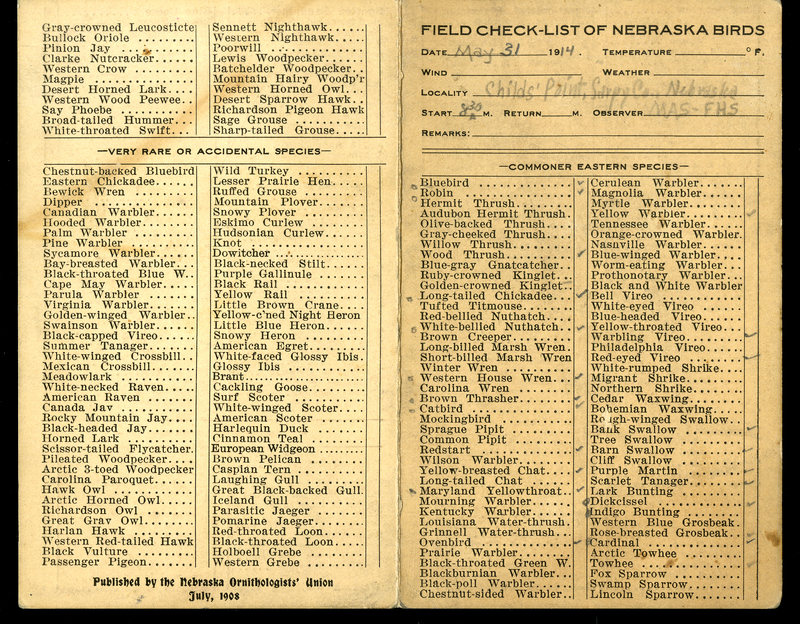 Gray-crowned Leucosticte
Bullock Oriole
Pinion Jay
Clarke Nutcracker
Western Crow
Magpie
Desert Horned Lark
Western Wood Peewee
Say Phoebe
Broad-tailed Hummer
White-throated Swift
Sennett Nighthawk
Western Nighthawk
Poorwill
Lewis Woodpecker
Batchelder Woodpecker
Mountain Hairy Woodp'r
Western Horned Owl
Desert Sparrow Hawk
Richardson Pigeon Hawk
Sage Grouse
Sharp-tailed Grouse
—VERY RARE OR ACCIDENTAL SPECIES—
Chestnut-backed Bluebird
Eastern Chickadee
Bewick Wren
Dipper
Canadian Warbler
Hooded Warbler
Palm Warbler
Pine Warbler
Sycamore Warbler
Bay-breasted Warbler
Black-throated Blue W.
Cape May Warbler
Parula Warbler
Virginia Warbler
Golden-winged Warbler
Swainson Warbler
Black-capped Vireo
Summer Tanager
White-winged Crossbill
Mexican Crossbill
Meadowlark
White-necked Raven
American Raven
Canada Jay
Rocky Mountain Jay
Black-headed Jay
Horned Lark
Scissor-tailed Flycatcher
Pileated Woodpecker
Arctic 3-toed Woodpecker
Carolina Paroquet
Hawk Owl
Arctic Horned Owl
Richardson Owl
Great Gray Owl
Harlan Hawk
Western Red-tailed Hawk
Black Vulture
Passenger Pigeon
Wild Turkey
Lesser Prairie Hen
Ruffed Grouse
Mountain Plover
Snowy Plover
Eskimo Curlew
Hudsonian Curlew
Knot
Dowitcher
Black-necked Stilt
Purple Gallinule
Black Rail
Yellow Rail
Little Brown Crane
Yellow-c'ned Night Heron
Little Blue Heron
Snowy Heron
American Egret
White-faced Glossy Ibis
Glossy Ibis
Brant
Cackling Goose
Surf Scoter
White-winged Scoter
American Scoter
Harlequin Duck
Cinnamon Teal
European Widgeon
Brown Pelican
Caspian Tern
Laughing Gull
Great Black-backed Gull
Iceland Gull
Parasitic Jaeger
Pomarine Jaeger
Red-throated Loon
Black-throated Loon
Holboell Grebe
Western Grebe
Published by the Nebraska Ornithologists' Union
July, 1908
FIELD CHECK-LIST OF NEBRASKA BIRDS
DATE May 31 1914. TEMPERATURE °F.
WIND WEATHER
LOCALITY Childs' Point, Sarpy Co., Nebraska
START 8:30 A M. RETURN M. OBSERVER MAS-FHS
REMARKS:
—COMMONER EASTERN SPECIES—
Bluebird
Robin
Hermit Thrush
Audubon Hermit Thrush
Olive-backed Thrush
Gray-cheeked Thrush
Willow Thrush
Wood Thrush
Blue-gray Gnatcatcher
Ruby-crowned Kinglet
Golden-crowned Kinglet
Long-tailed Chickadee
Tufted Titmouse
Red-bellied Nuthatch
White-bellied Nuthatch
Brown Creeper
Long-billed Marsh Wren
Short-billed Marsh Wren
Winter Wren
Western House Wren
Carolina Wren
Brown Thrasher
Catbird
Mockingbird
Sprague Pipit
Common Pipit
Redstart
Wilson Warbler
Yellow-breasted Chat
Long-tailed Chat
Maryland Yellowthroat
Mourning Warbler
Kentucky Warbler
Louisiana Water-thrush
Grinnell Water-thrush
Ovenbird
Prairie Warbler
Black-throated Green W.
Blackburnian Warbler
Black-poll Warbler
Chestnut-sided Warbler
Cerulean Warbler
Magnolia Warbler
Myrtle Warbler
Yellow Warbler
Tennessee Warbler
Orange-crowned Warbler
Nashville Warbler
Blue-winged Warbler
Worm-eating Warbler
Prothonotary Warbler
Black and White Warbler
Bell Vireo
White-eyed Vireo
Blue-headed Vireo
Yellow-throated Vireo
Warbling Vireo
Philadelphia Vireo
Red-eyed Vireo
White-rumped Shrike
Migrant Shrike
Northern Shrike
Cedar Waxwing
Bohemian Waxwing
Rough-winged Swallow
Bank Swallow
Tree Swallow
Barn Swallow
Cliff Swallow
Purple Martin
Scarlet Tanager
Lark Bunting
Dickcissel
Indigo Bunting
Western Blue Grosbeak
Rose-breasted Grosbeak
Cardinal
Arctic Towhee
Towhee
Fox Sparrow
Swamp Sparrow
Lincoln Sparrow